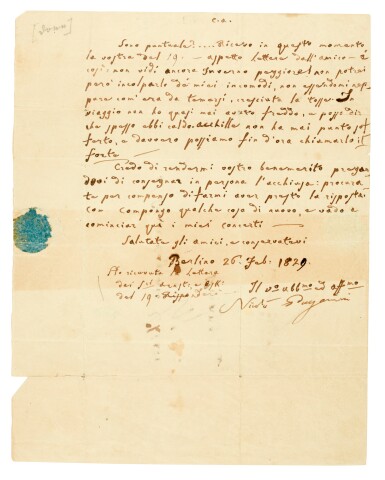 [Down]
C.A.
Sono puntuale.... Ricevo in questo momento
la vostra del 19. — aspetto lettere dall'amico — è
così non vidi ancora Inverno peggiore! non potrei
però incolparlo de' miei incomodi, non essendomi nep-
pure com'era da temersi, cresciuta la tosse. In
viaggio non ho quasi mai avuto freddo, e posso dir
che spesso ebbi caldo. Achille non ha mai punto sof-
ferto, e davvero possiamo fin d'ora chiamarlo il
forte
Credo di rendermi vostro benemerito pregan-
dovi di consegnare in persona l'acchiusa: procura-
te per compenso di farmi aver presto la risposta
con Compongo qualche cosa di nuovo, e vado a
cominciar qui i miei concerti —
Salutate gli amici, e conservatevi
Berlino 26. Feb. 1829.
Ho ricevuto la lettera
del 19
Il vo
Nicolò Paganini